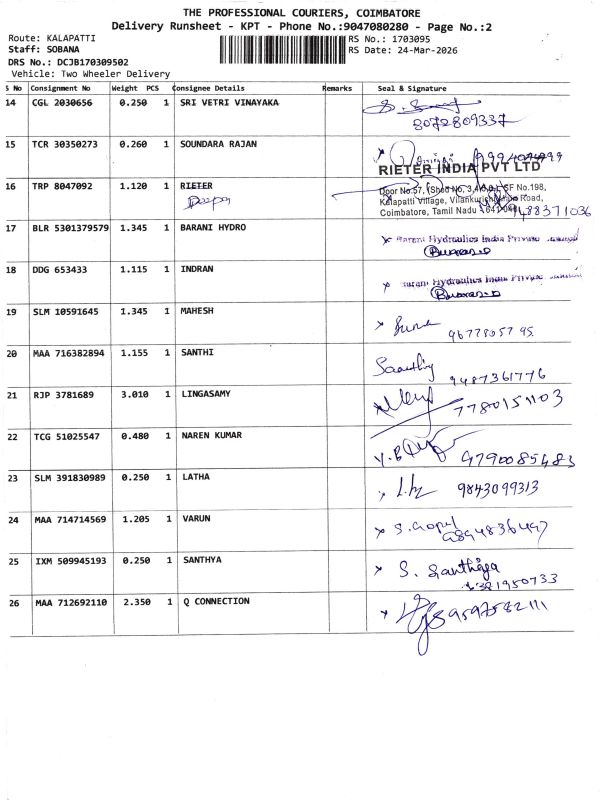 THE PROFESSIONAL COURIERS, COIMBATORE
Delivery Runsheet - KPT - Phone No.:9047080280 - Page No.:2
Route: KALAPATTI
RS No.: 1703095
Staff: SOBANA
RS Date: 24-Mar-2026
DRS No.: DCJB170309502
Vehicle: Two Wheeler Delivery
S No Consignment No Weight PCS Consignee Details Remarks Seal & Signature
14 CGL 2030656 0.250 1 SRI VETRI VINAYAKA
8072809337
15 TCR 30350273 0.260 1 SOUNDARA RAJAN
RIETER INDIA PVT LTD
16 TRP 8047092 1.120 1 RIETER
Door No.57, SF No.198,
Kalapatti Village, Road,
Coimbatore, Tamil Nadu
9488371036
17 BLR 5301379579 1.345 1 BARANI HYDRO
Barani Hydraulics India Private
18 DDG 653433 1.115 1 INDRAN
Barani Hydraulics India Private
19 SLM 10591645 1.345 1 MAHESH
9677805795
20 MAA 716382894 1.155 1 SANTHI
9487361776
21 RJP 3781689 3.010 1 LINGASAMY
7780151103
22 TCG 51025547 0.480 1 NAREN KUMAR
9790085483
23 SLM 391830989 0.250 1 LATHA
9843099313
24 MAA 714714569 1.205 1 VARUN
S. Gopul
9894836497
25 IXM 509945193 0.250 1 SANTHYA
S. Santhiya
26 MAA 712692110 2.350 1 Q CONNECTION
9597582111